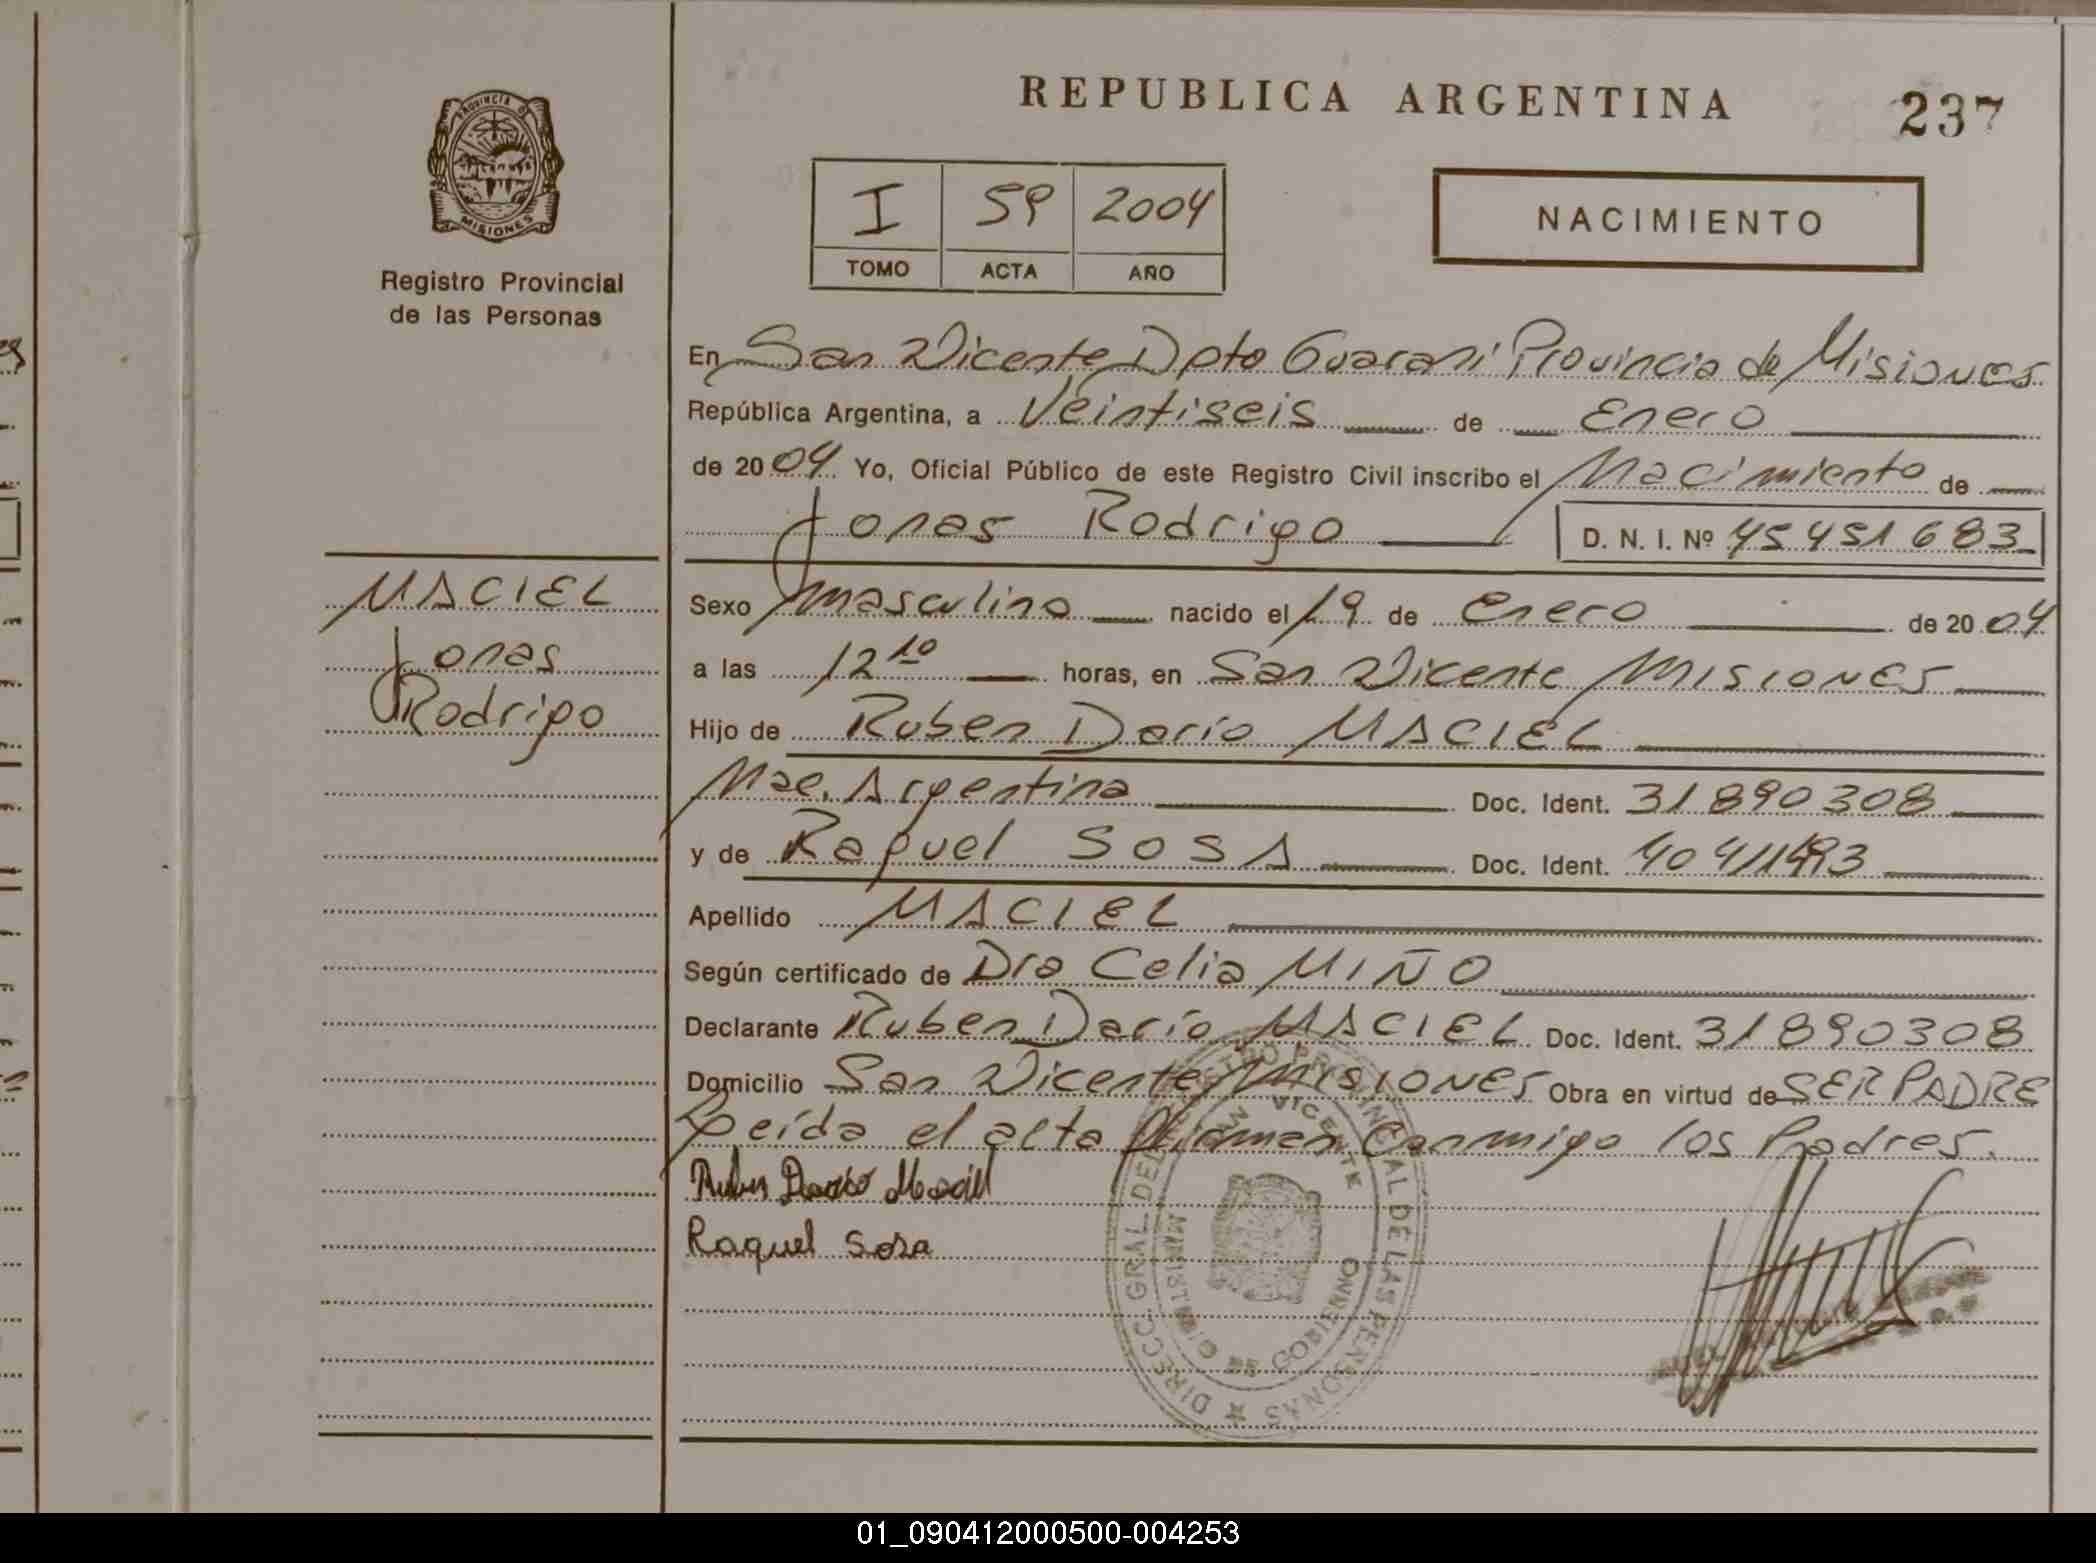 REPUBLICA ARGENTINA
237
PROVINCIA D
MISIONES
Registro Provincial
de las Personas
I 59 2004
TOMO ACTA AÑO
NACIMIENTO
En San Vicente Dpto Guaraní Provincia de Misiones
República Argentina, a Veintiseis de Enero
de 2004 Yo, Oficial Público de este Registro Civil inscribo el Nacimiento de
Jonas Rodrigo D. N. I. Nº 45451683
MACIEL
Jonas
Rodrigo
Sexo masculino nacido el 19 de Enero de 2004
a las 12 10 horas, en San Vicente Misiones
Hijo de Ruben Dario MACIEL
Nac. Argentina Doc. Ident. 31890308
y de Raquel SOSA Doc. Ident.
Apellido MACIEL
Según certificado de Dra Celia MIÑO
Declarante Ruben Darío MACIEL Doc. Ident. 31890308
Domicilio San Vicente Misiones Obra en virtud de SER PADRE
Leída el acta firman Conmigo los Padres.
Ruben Dario Maciel
Raquel Sosa
DIRECC. GRAL. DEL REGISTRO PROVINCIAL DE LAS PERSONAS
SAN VICENTE
MISIONES
01_090412000500-004253